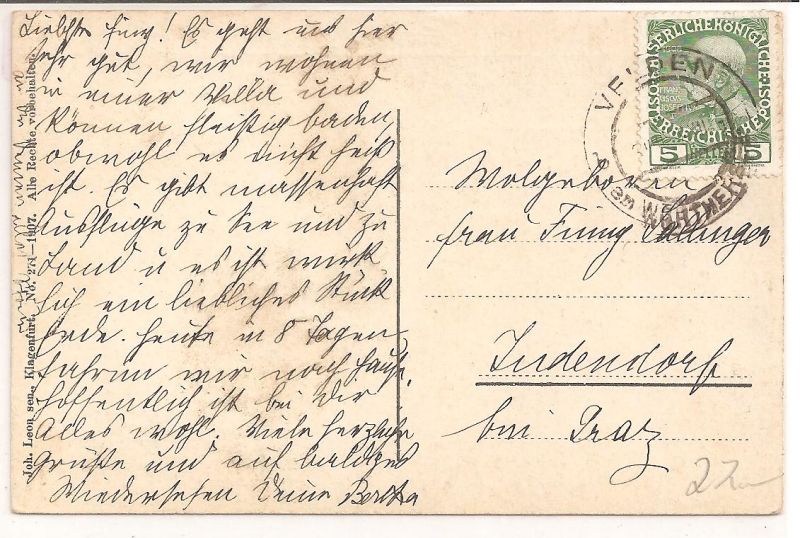 Liebste Finy! Es geht uns hier
sehr gut, wir wohnen
in einer Villa und
können fleißig baden,
obwohl es nicht heiß
ist. Es gibt massenhaft
Ausflüge zu See und zu
Land u es ist wirk-
lich ein liebliches Stück
Erde. heute in 8 Tagen
fahren wir nach hause.
hoffentlich ist bei Dir
Alles wohl. Viele herzliche
Grüße und auf baldiges
Wiedersehen Deine Berta
Joh. Leon sen., Klagenfurt. No. 271—1907. Alle Rechte vorbehalten.
KAISERLICHE KÖNIGLICHE
ÖSTERREICHISCHE POST
5 5
VELDEN
am WÖRTHERSEE
Wolgeboren
frau Finny
Judendorf
bei Graz